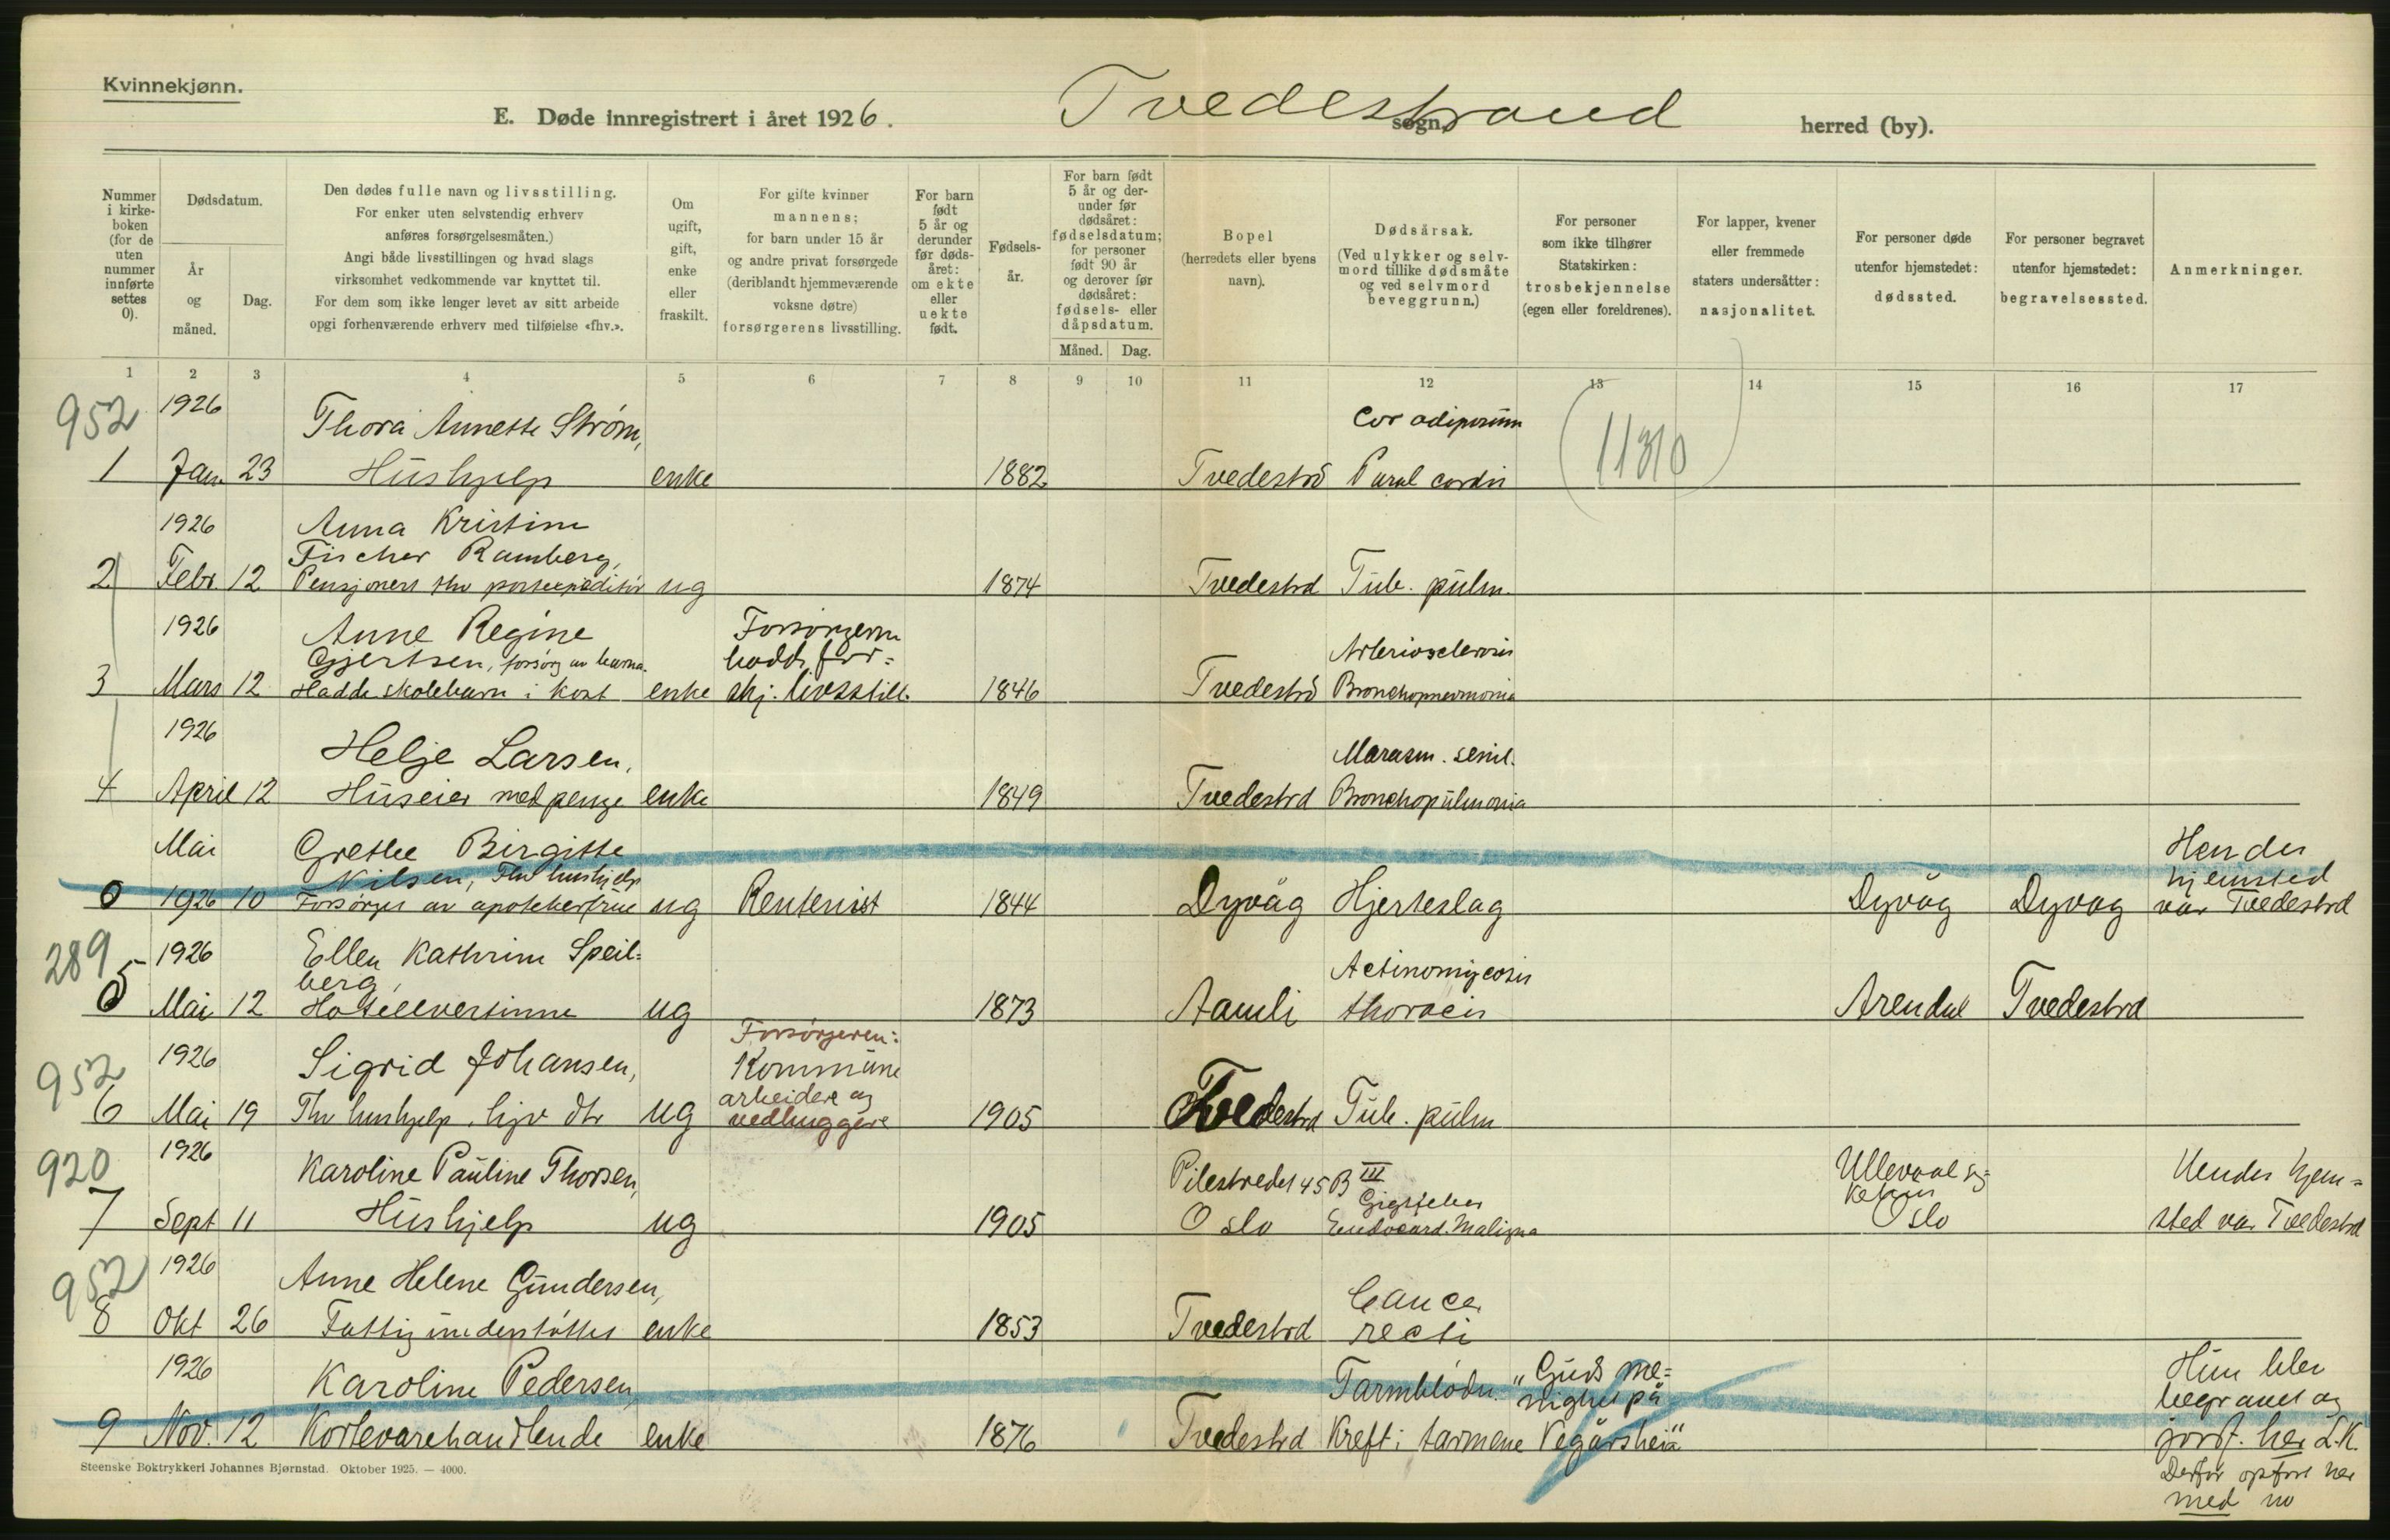 Kvinnekjønn.
E. Døde innregistrert i året 1926. Tvedestrand sogn, herred (by).
Nummer i kirkeboken (for de uten nummer innførte settes 0).
Dødsdatum.
År og måned.
Dag.
Den dødes fulle navn og livsstilling.
For enker uten selvstendig erhverv
anføres forsørgelsesmåten.)
Angi både livsstillingen og hvad slags
virksomhet vedkommende var knyttet til.
For dem som ikke lenger levet av sitt arbeide
opgi forhenværende erhverv med tilføielse «fhv.».
Om ugift, gift, enke eller fraskilt.
For gifte kvinner
mannens;
for barn under 15 år
og andre privat forsørgede
(deriblandt hjemmeværende
voksne døtre)
forsørgerens livsstilling.
For barn født 5 år og derunder før dødsåret: om ekte eller uekte født.
Fødselsår.
For barn født 5 år og derunder før dødsåret: fødselsdatum; for personer født 90 år og derover før dødsåret: fødsels- eller dåpsdatum.
Måned. Dag.
Bopel
(herredets eller byens
navn).
Dødsårsak.
(Ved ulykker og selvmord tillike dødsmåte og ved selvmord beveggrunn.)
For personer
som ikke tilhører
Statskirken:
trosbekjennelse
(egen eller foreldrenes).
For lapper, kvener
eller fremmede
staters undersåtter:
nasjonalitet.
For personer døde
utenfor hjemstedet:
dødssted.
For personer begravet
utenfor hjemstedet:
begravelsessted.
Anmerkninger.
1 2 3 4 5 6 7 8 9 10 11 12 13 14 15 16 17
952 1926 Thora Annette Strøm, Cor adiposum
1 Jan. 23 Hushjelp enke 1882 Tvedestrd Paral cordis (11310)
1926 Anna Kristine
Fischer Ramberg,
2 Febr. 12 Pensjonert fhv postekspeditør ug 1874 Tvedestrd Tub. pulm.
1926 Anne Regine Forsørgeren
Gjertsen, forsørg av barna. hadde for= Arteriosclerosis
3 Mars 12 Hadde skolebarn i kost enke skj. livsstill. 1846 Tvedestrd Bronchopneumonia
1926 Helje Larsen, Marasm. senil.
4 April 12 Huseier med penge enke 1849 Tvedestrd Bronchopulmonia
Mai Grethe Birgitte Hendes
Nilsen, Fhv hushjelp hjemsted
0 1926 10 Forsørges av apotekerfrue ug Rentenist 1844 Dyvåg Hjerteslag Dyvåg Dyvag var Tvedestrd
289 1926 Ellen Kathrine Speil=
berg, Actinomycosis
5 Mai 12 Hotellvertinne ug 1873 Aamli thoracis Arendal Tvedestrd
Forsørgeren:
952 1926 Sigrid Johansen, Kommune
arbeider og
6 Mai 19 Fhv hushjelp. hjv dtr ug vedhuggere 1905 Tvedestrd Tub. pulm
920 1926 Karoline Pauline Thorsen, Pilestredet 45 B III Ullevaal sy= Hendes hjem=
Gigtfeber kehus
7 Sept 11 Hushjelp ug 1905 Oslo Endocard. Maligna Oslo sted var Tvedestrd
952 1926 Anne Helene Gundersen, Cancer
8 Okt 26 Fattigunderstøttet enke 1853 Tvedestrd recti
1926 Karoline Pedersen, Tarmblødn. "Guds me= Hun blev
nighet på begravet og
9 Nov. 12 Kortevarehandlende enke 1876 Tvedestrd Kreft i tarmene Vegårshei" jordf. her L.K.
Derfor opført her
med no
Steenske Boktrykkeri Johannes Bjørnstad. Oktober 1925. — 4000.